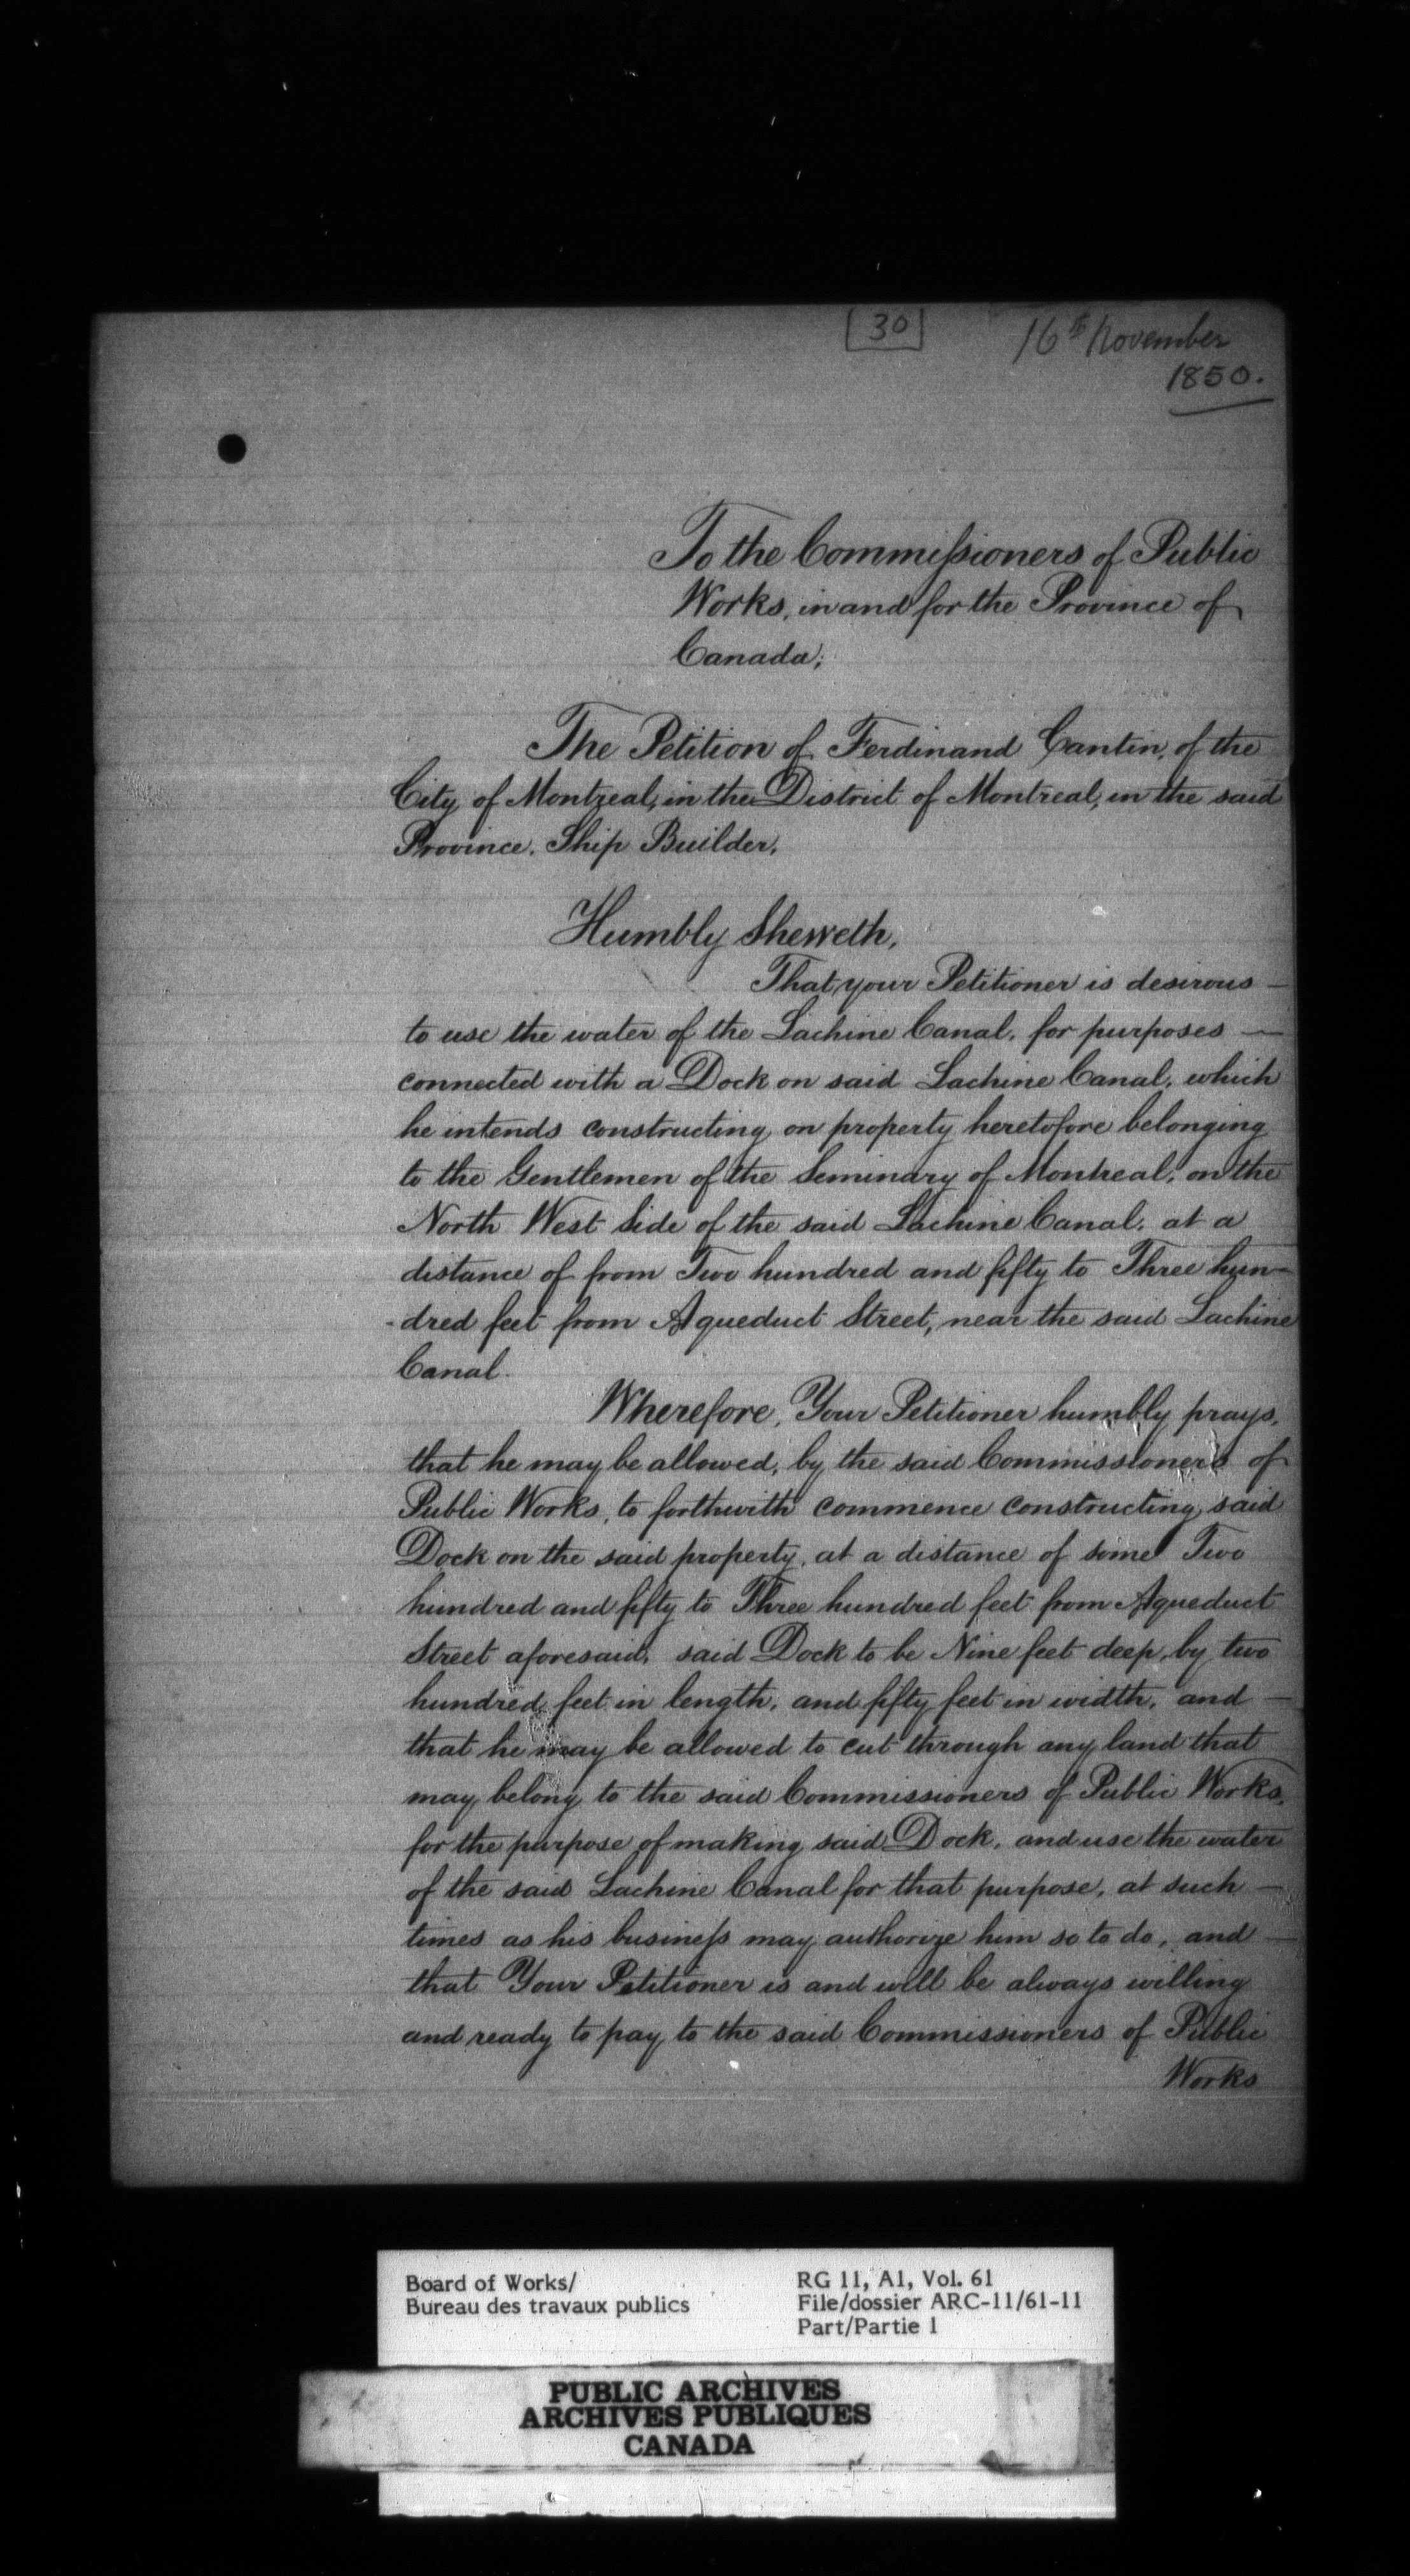 30
16th November
1850.
To the Commissioners of Public
Works, in and for the Province of
Canada;
The Petition of Ferdinand Cantin, of the
City of Montreal, in the District of Montreal, in the said
Province. Ship Builder,
Humbly Sheweth,
That your Petitioner is desirous —
to use the water of the Lachine Canal, for purposes —
connected with a Dock on said Lachine Canal, which
he intends constructing on property heretofore belonging
to the Gentlemen of the Seminary of Montreal, on the
North West Side of the said Lachine Canal, at a
distance of from Two hundred and fifty to Three hun-
-dred feet from Aqueduct Street, near the said Lachine
Canal.
Wherefore, Your Petitioner humbly prays,
that he may be allowed, by the said Commissioners of
Public Works, to forthwith commence constructing said
Dock on the said property, at a distance of some Two
hundred and fifty to Three hundred feet from Aqueduct
Street aforesaid, said Dock to be Nine feet deep, by two
hundred feet in length, and fifty feet in width, and —
that he may be allowed to cut through any land that
may belong to the said Commissioners of Public Works,
for the purpose of making said Dock, and use the water
of the said Lachine Canal for that purpose, at such —
times as his business may authorize him so to do, and —
that Your Petitioner is and will be always willing
and ready to pay to the said Commissioners of Public
Works
Board of Works/
Bureau des travaux publics
RG 11, A1, Vol. 61
File/dossier ARC-11/61-11
Part/Partie 1
PUBLIC ARCHIVES
ARCHIVES PUBLIQUES
CANADA